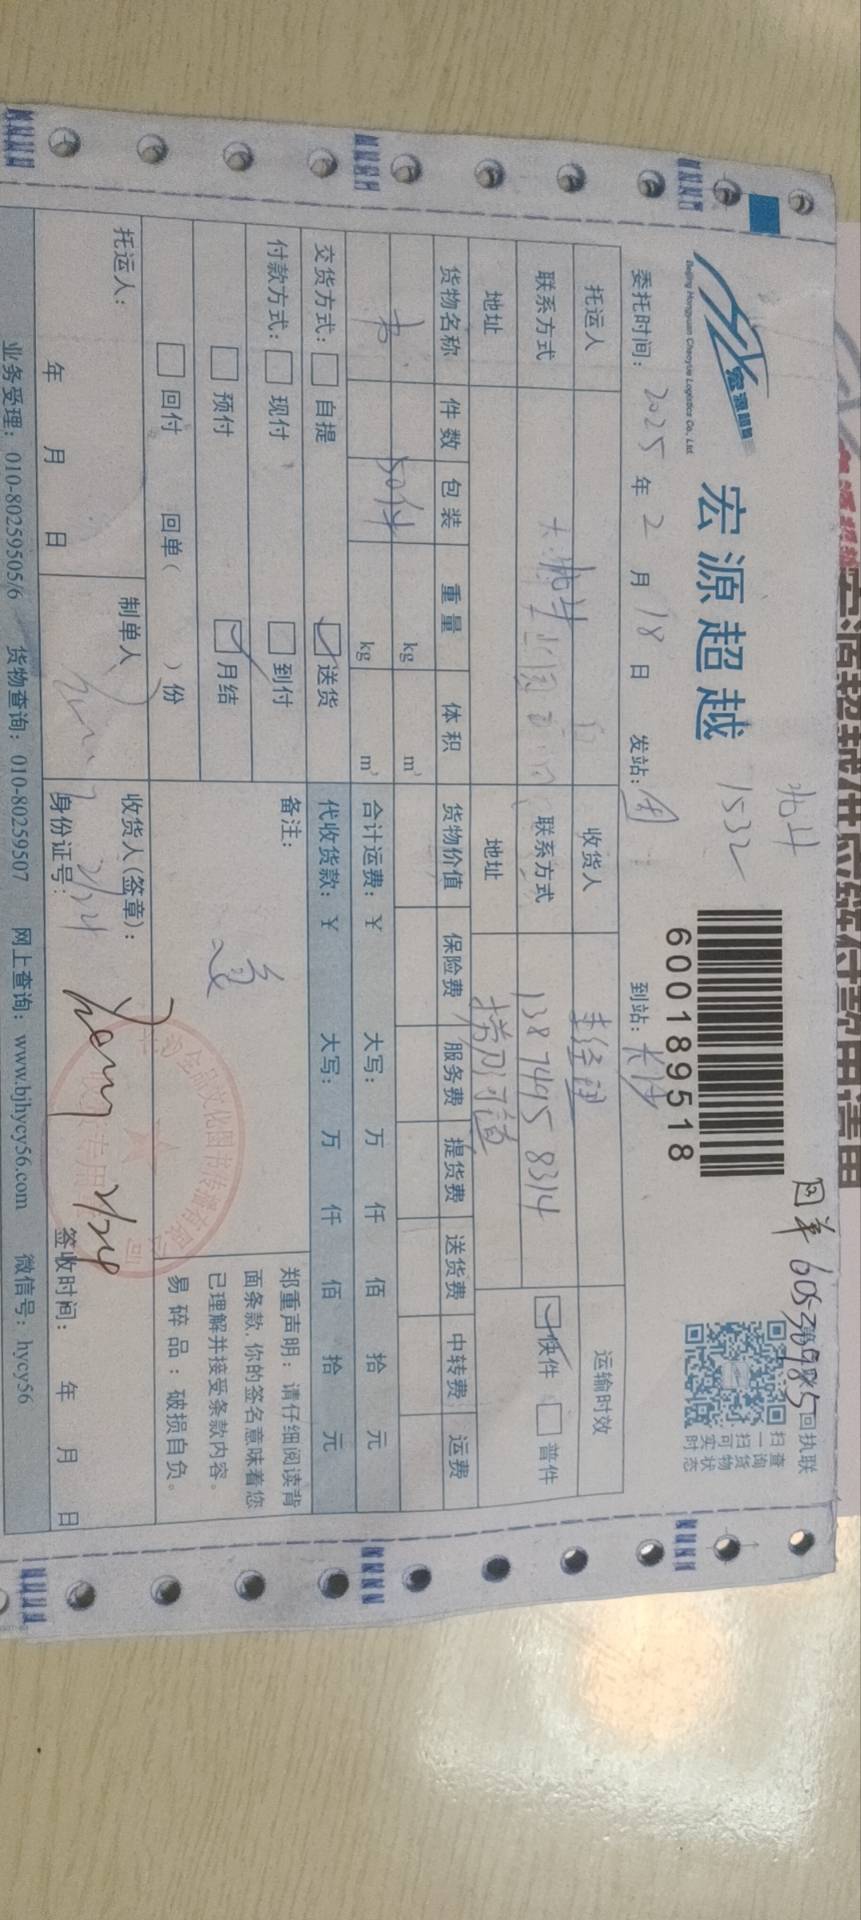 宏源超越
Beijing Hongyuan Chaoyue Logistics Co., Ltd
宏源超越
1532
600189518
回单6053
985
回执联
扫一扫 查询货物实时状态
委托时间: 2025 年 2 月 18 日 发站: 到站: 长沙
托运人 收货人 李经理 运输时效
联系方式 联系方式 13874958314 快件 普件
地址 地址
货物名称 件数 包装 重量 体积 货物价值 保险费 服务费 提货费 送货费 中转费 运费
书 50件 kg m³
kg m³ 合计运费: ¥ 大写: 万 仟 佰 拾 元
交货方式: 自提 送货 代收货款: ¥ 大写: 万 仟 佰 拾 元
付款方式: 现付 到付 备注:
预付 月结
回付 回单( )份
郑重声明:请仔细阅读背
面条款,你的签名意味着您
已理解并接受条款内容。
易碎品:破损自负。
托运人: 制单人 收货人(签章):
年 月 日 身份证号: 2/24 2/24 签收时间: 年 月 日
业务受理: 010-80259505/6 货物查询: 010-80259507 网上查询: www.bjhycy56.com 微信号: hycy56